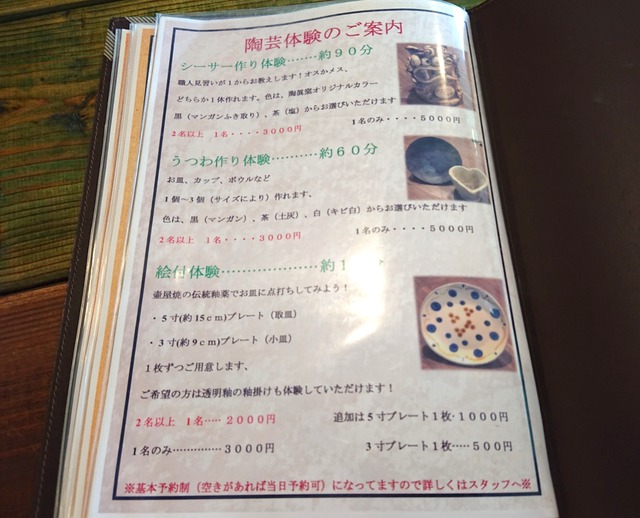 陶芸体験のご案内
シーサー作り体験……約９０分
職人見習いが１からお教えします！オスかメス、
どちらか１体作れます。色は、陶眞窯オリジナルカラー
黒（マンガンふき取り）、茶（塩）からお選びいただけます
２名以上 １名・・・・３０００円 １名のみ・・・・５０００円
うつわ作り体験………約６０分
お皿、カップ、ボウルなど
１個～３個（サイズにより）作れます、
色は、黒（マンガン）、茶（土灰）、白（キビ白）からお選びいただけます
２名以上 １名・・・・３０００円 １名のみ・・・・５０００円
絵付体験…………………約１ 分
壷屋焼の伝統釉薬でお皿に点打ちしてみよう！
・５寸(約15ｃｍ)プレート（取皿）
・３寸(約９ｃｍ)プレート（小皿）
１枚ずつご用意します、
ご希望の方は透明釉の釉掛けも体験していただけます！
２名以上 １名……２０００円 追加は５寸プレート１枚・１０００円
１名のみ……………３０００円 ３寸プレート１枚……５００円
※基本予約制（空きがあれば当日予約可）になってますので詳しくはスタッフへ※